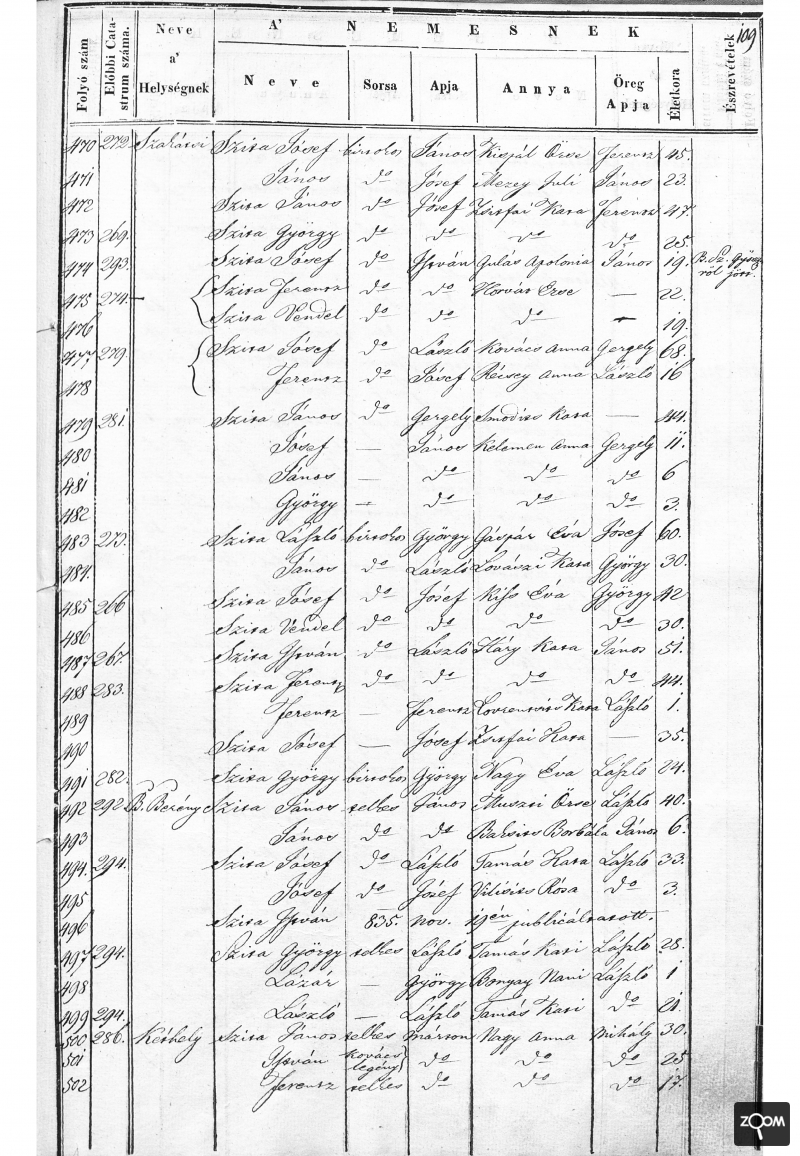 109
Folyó szám
Előbbi Catastrum száma.
Neve a' Helységnek
A' NEMESNEK
Neve Sorsa Apja Annya Öreg Apja Életkora
Észrevételek
470 272 Szakátsi Szita Jósef birtokos János Kisjál Örse Ferentz 45.
471 János do Jósef Mezey Juli János 23.
472 Szita János do Jósef Zsitfai Kata Ferentz 47.
473 269. Szita György do do do do 25.
474 293. Szita Jósef do István Gulás Apolonia János 19. B. Sz. Györgyről jött.
475 274 Szita Ferentz do do Horvát Örse — 22.
476 Szita Vendel do do do — 19.
477 279. Szita Jósef do László Kovács Anna Gergely 68.
478 Ferentz do Jósef Récsey Anna László 16
479 281. Szita János do Gergely Smodits Kata — 44.
480 Jósef — János Kelemen Anna Gergely 11.
481 János — do do do 6
482 György — do do do 3.
483 273. Szita László birtokos György Gáspár Éva Jósef 60.
484. János do László Lovászi Kata György 30.
485 266 Szita Jósef do Jósef Kiss Éva György 42
486 Szita Vendel do do do do 30.
487 267. Szita István do László Háry Kata János 51.
488 283. Szita Ferentz do do do do 44.
489 Ferentz — Ferentz Lovrentsits Kata László 1.
490 Szita Jósef — Jósef Zsitfai Kata — 35.
491 282. Szita György birtokos György Nagy Éva László 24.
492 292 B. Berény Szita János telkes János Muszti Örse László 40.
493 János do do Borbála János 6.
494 294. Szita Jósef do László Tamás Kata László 33.
495 Jósef do Jósef Rósa do 3.
496 Szita István 835. Nov. 19én publicáltatott.
497 294. Szita György telkes László Tamás Kati László 28.
498 Lázár — György Bonyay Nani László 1
499 294. László — László Tamás Kati do 21.
500 286. Kéthely Szita János telkes Márton Nagy Anna Mihály 30.
501 István kovács legény do do do 25
502 Ferentz telkes do do do 17.
ZOOM